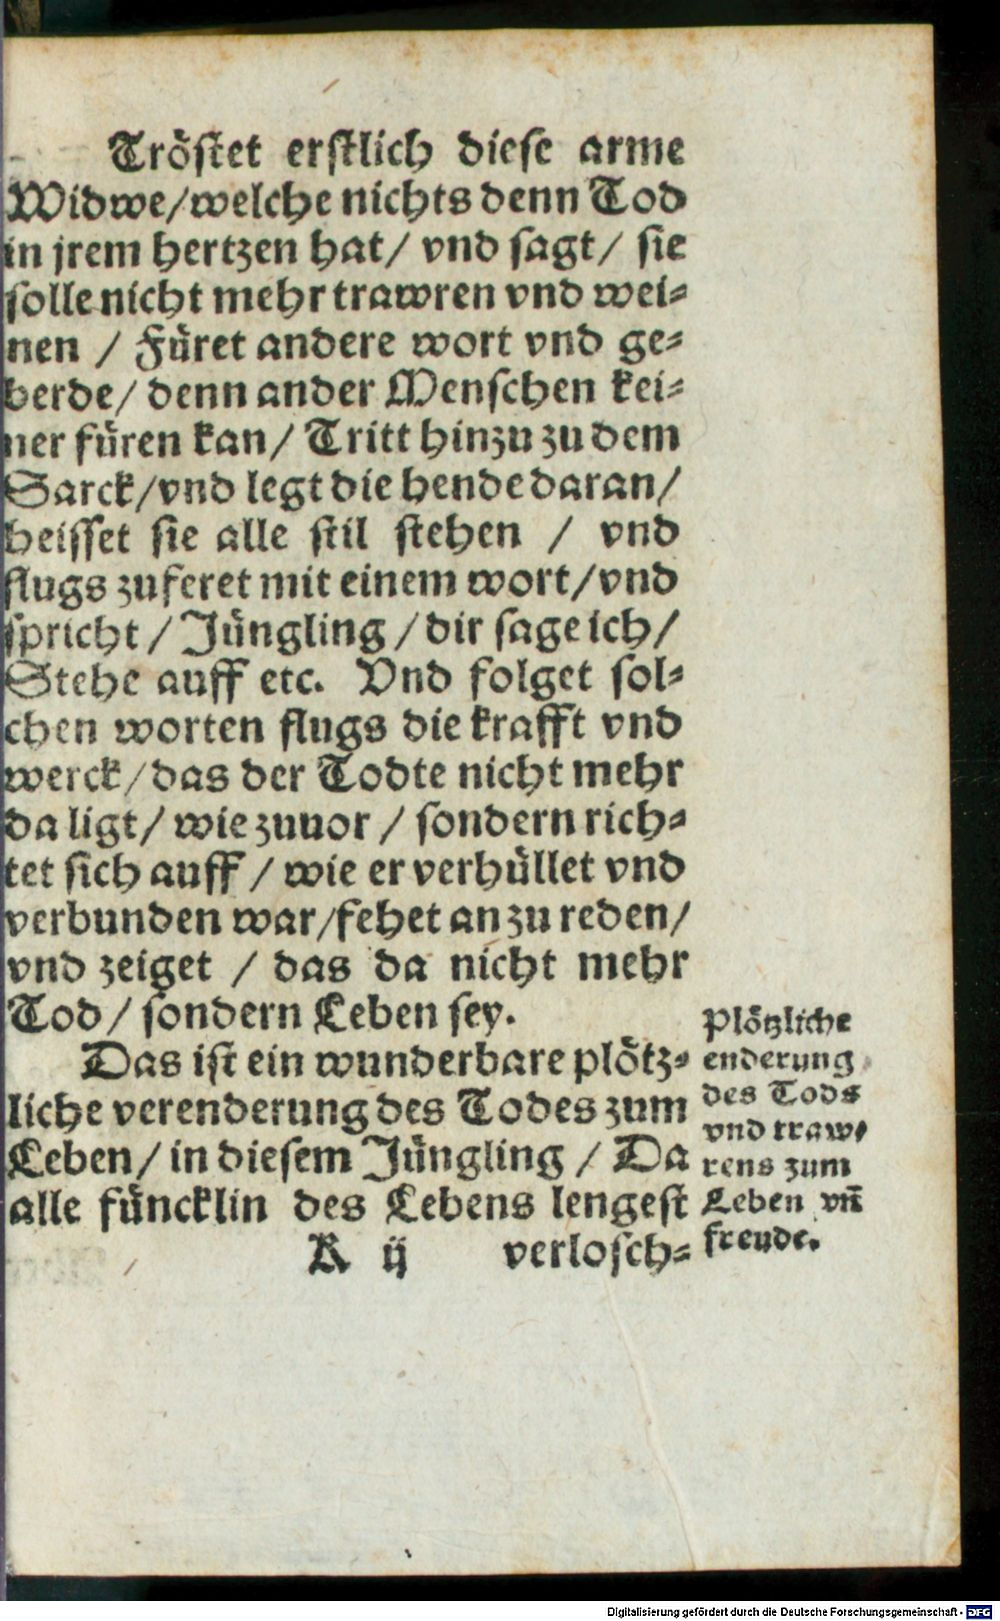 Tröstet erstlich diese arme
Widwe/welche nichts denn Tod
in jrem hertzen hat/ vnd sagt/ sie
solle nicht mehr trawren vnd wei-
nen / Füret andere wort vnd ge-
berde/ denn ander Menschen kei-
ner füren kan/ Tritt hinzu zu dem
Sarck/vnd legt die hende daran/
heisset sie alle stil stehen / vnd
flugs zuferet mit einem wort/vnd
spricht / Jüngling / dir sage ich/
Stehe auff etc. Vnd folget sol-
chen worten flugs die krafft vnd
werck/das der Todte nicht mehr
da ligt/ wie zuuor / sondern rich-
tet sich auff / wie er verhüllet vnd
verbunden war/fehet an zu reden/
vnd zeiget / das da nicht mehr
Tod/ sondern Leben sey.
Das ist ein wunderbare plötz-
liche verenderung des Todes zum
Leben/ in diesem Jüngling / Da
alle füncklin des Lebens lengest
K ij verlosch-
Plötzliche
enderung
des Tods
vnd traw-
rens zum
Leben vn̄
freude.
Digitalisierung gefördert durch die Deutsche Forschungsgemeinschaft - DFG